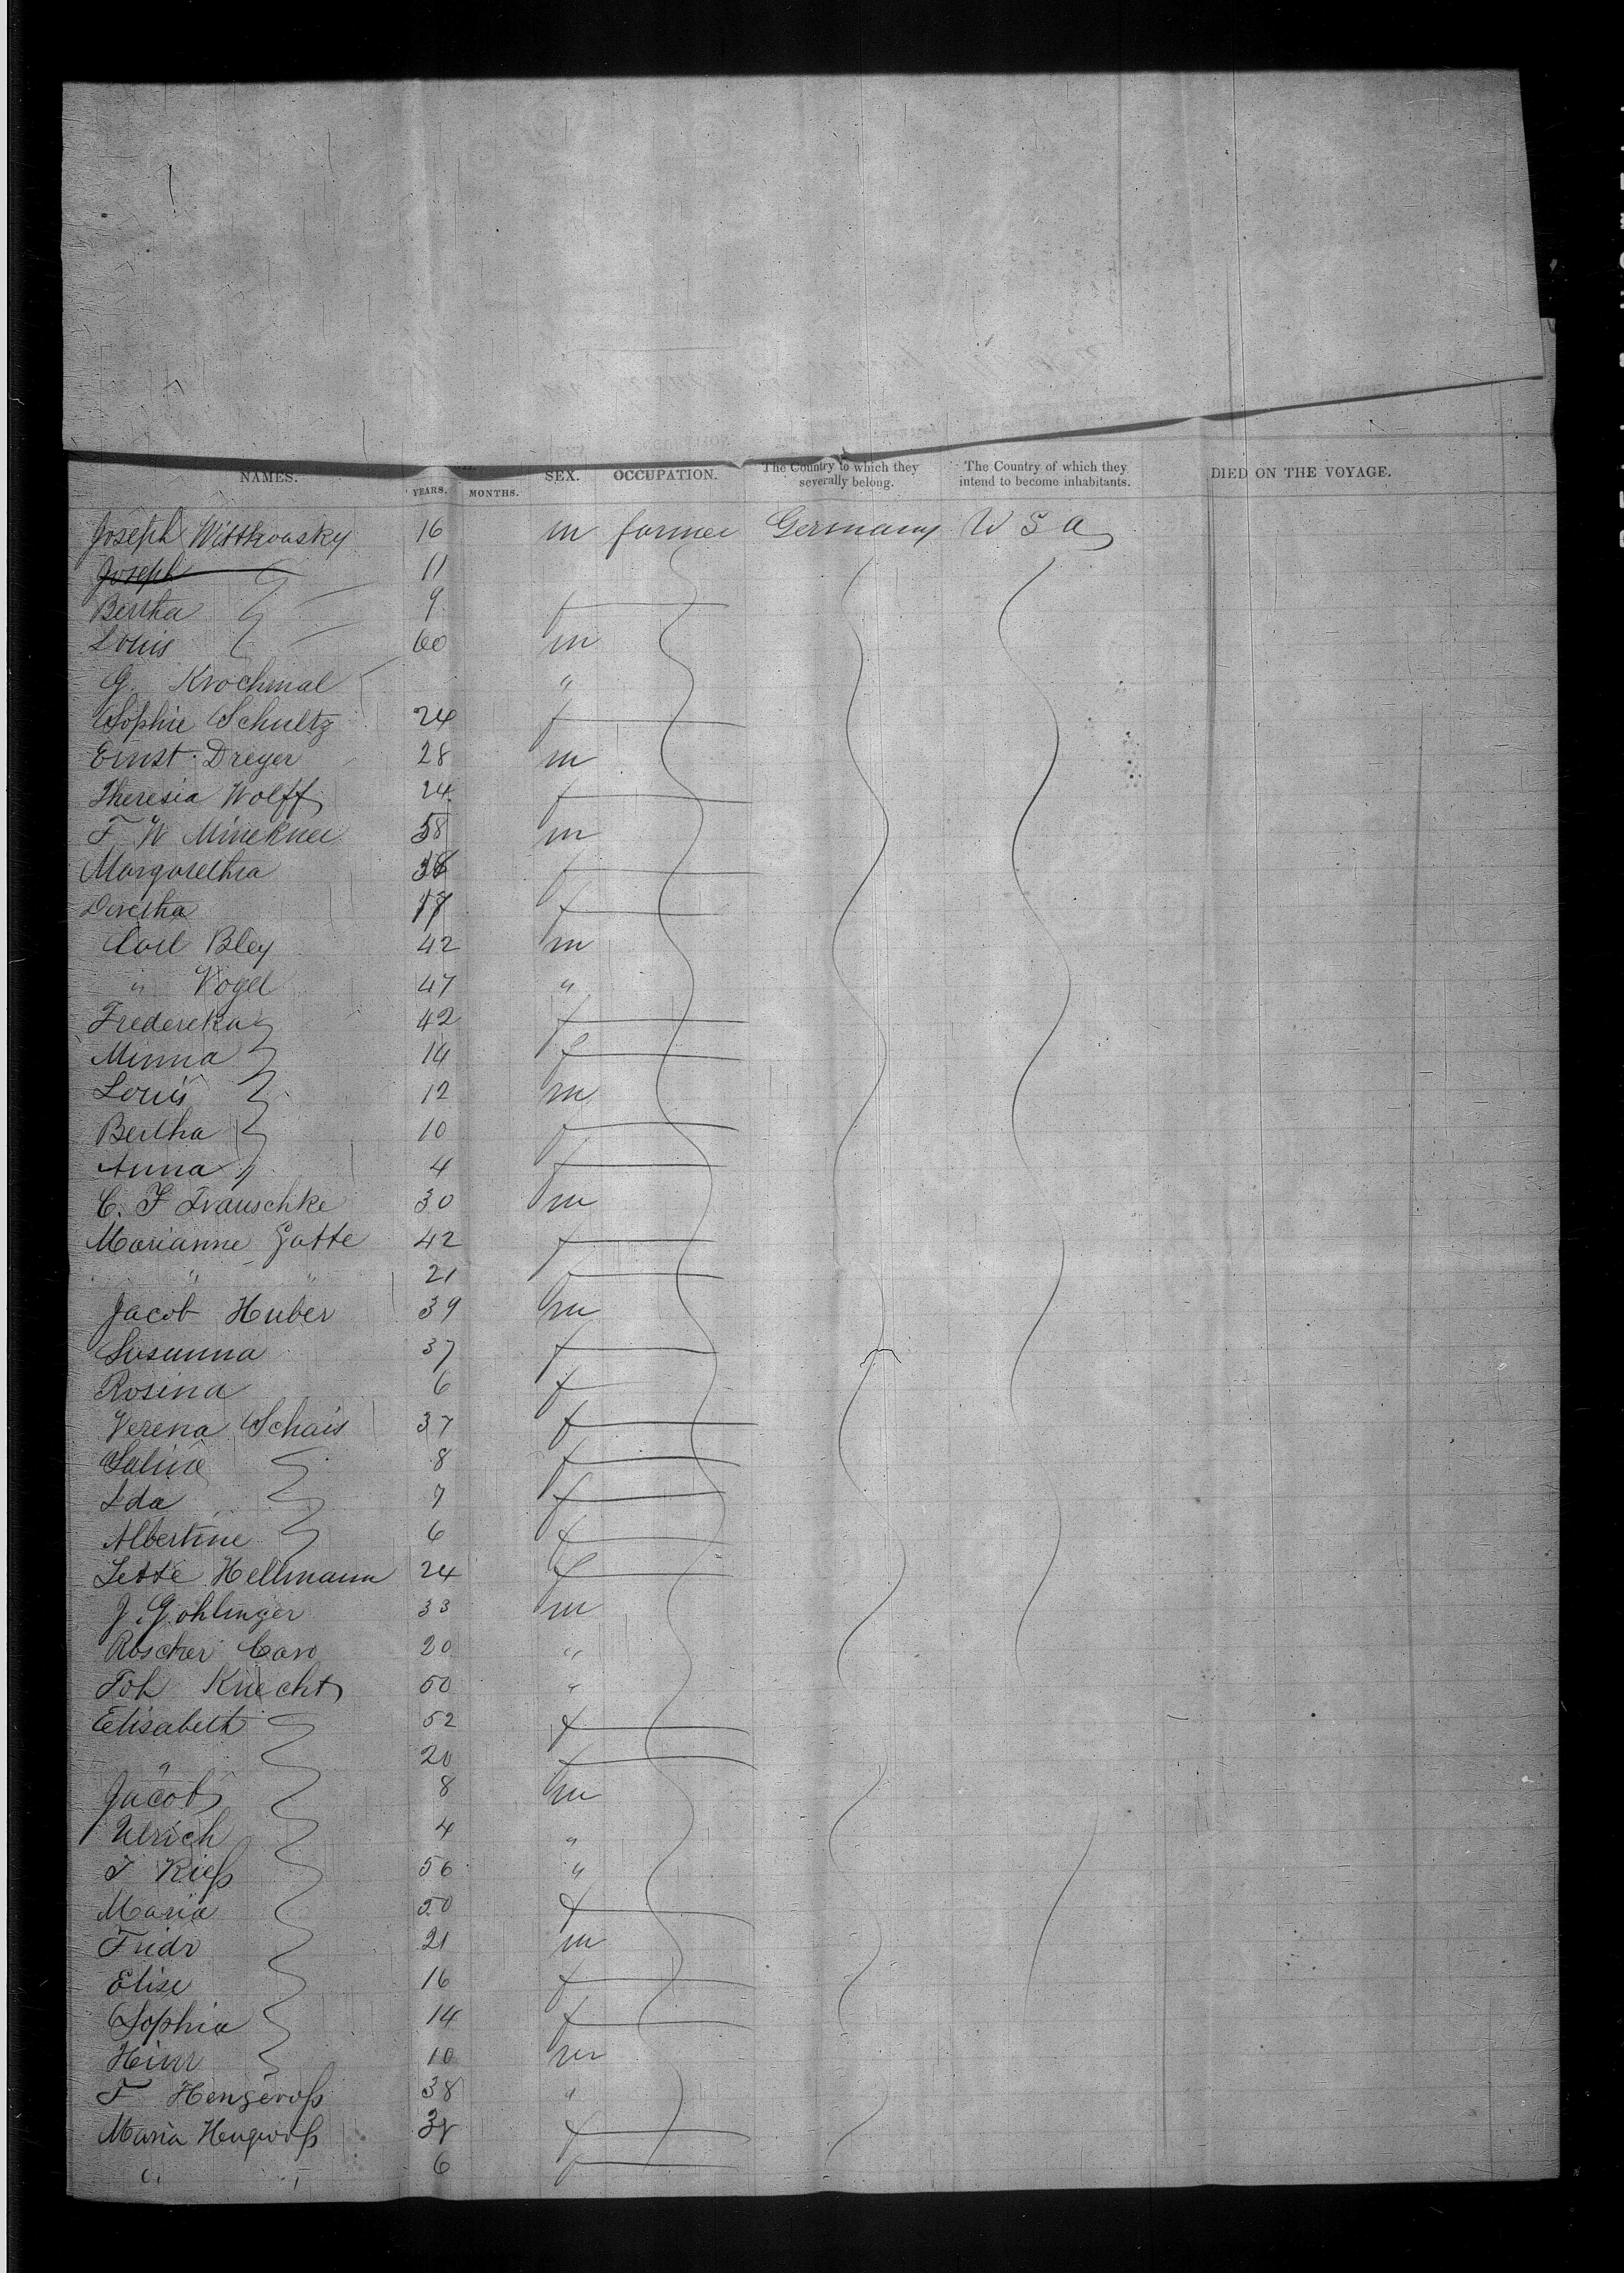 NAMES. YEARS. MONTHS. SEX. OCCUPATION. The Country to which they severally belong. The Country of which they intend to become inhabitants. DIED ON THE VOYAGE.
Joseph Wittkowsky 16 m farmer Germany U S A
Joseph 11
Bertha 9 f
Louis 60 m
G. Krochmal "
Sophie Schultz 24 f
Ernst Dreyer 28 m
Theresia Wolff 24 f
F W Minckner 58 m
Margarethra f
Doretha 17 f
Carl Bley 42 m
" Vogel 47 "
Fredereka 42 f
Minna 14 f
Louis 12 m
Bertha 10 f
Anna 4 f
C. F Trauschke 30 m
Marianne Gatte 42 f
" " 21 f
Jacob Huber 39 m
Susanna 37 f
Rosina 6 f
Verena Schais 37 f
Saline 8 f
Ida 7 f
Albertine 6 f
Jette Hellmann 24 f
J. Gohlinger 33 m
Roscher Caro 20 "
Joh Knecht 50 "
Elisabeth 52 f
" 20 f
Jacob 8 m
Ulrich 4 "
J Rieß 56 "
Maria 50 f
Fridr 21 m
Elise 16 f
Sophia 14 f
Heinr 10 m
F Hengeroß 38 "
Maria Hengeroß f
" " 6 f